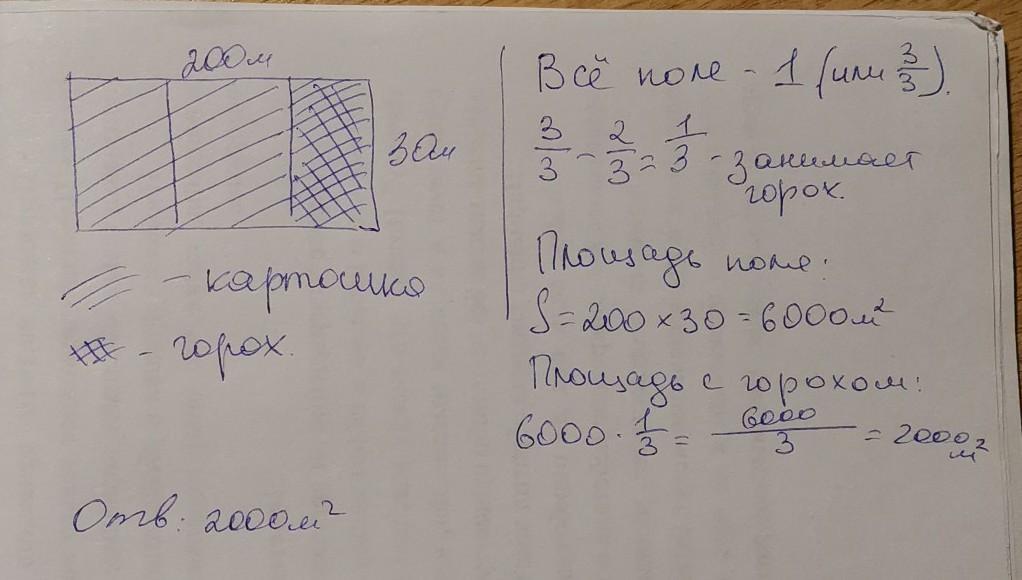 200м
30м
- картошка
- горох.
Отв: 2000м²
Всё поле - 1 (или 3/3).
3/3 - 2/3 = 1/3 - занимает
горох.
Площадь поля:
S = 200 × 30 = 6000м²
Площадь с горохом:
6000 · 1/3 = 6000/3 = 2000м²